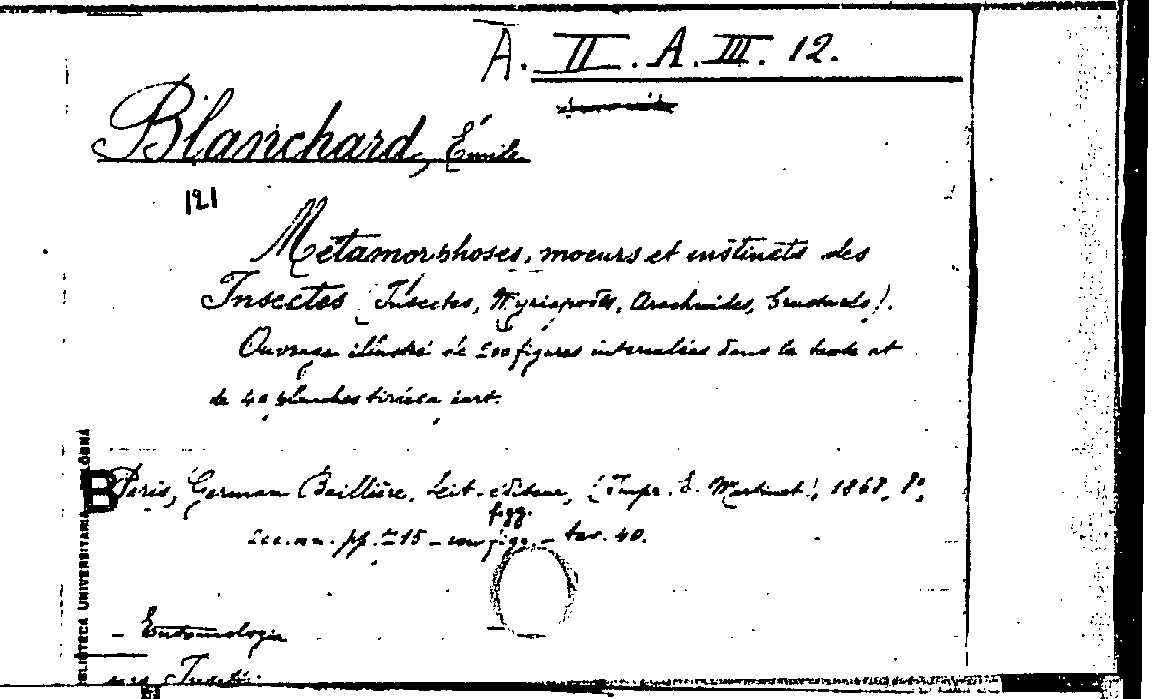 A. II. A. III. 12.
Blanchard, Émile
121
Métamorphoses, moeurs et instincts des
Insectes (Insectes, Myriapodes, Arachnides, Crustacés).
Ouvrage illustré de 200 figures intercalées dans le texte et
de 40 planches tirées a part.
Paris, Germer Baillière, edit., (Impr. E. Martinet), 1868, 8°,
figg.
pp. 715 - tav. 40.
- Entomologia
Insetti
BIBLIOTECA UNIVERSITARIA BOLOGNA
B